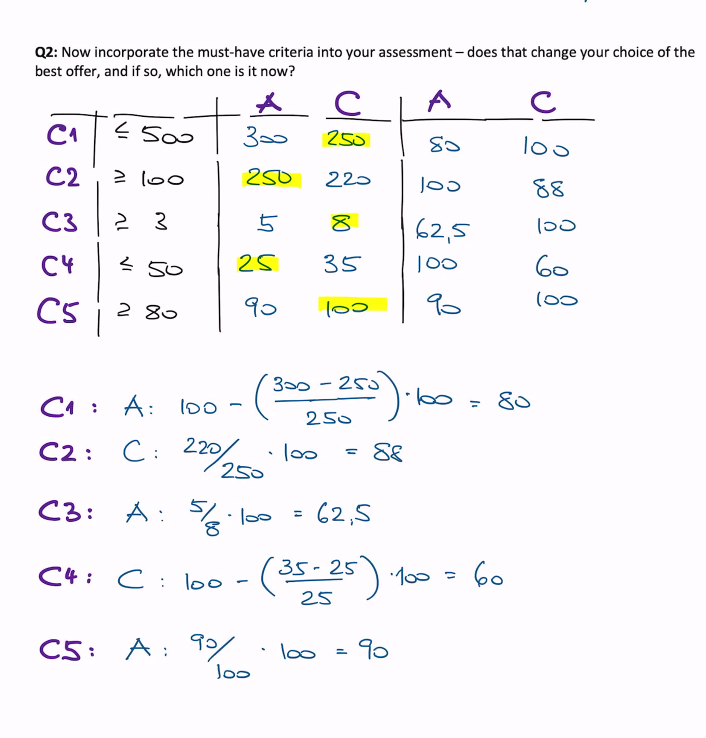 Q2: Now incorporate the must-have criteria into your assessment – does that change your choice of the
best offer, and if so, which one is it now?
A C A C
C1 ≤ 500 300 250 80 100
C2 ≥ 100 250 220 100 88
C3 ≥ 3 5 8 62,5 100
C4 ≤ 50 25 35 100 60
C5 ≥ 80 90 100 90 100
C1 : A: 100 - (300 - 250 / 250) · 100 = 80
C2 : C : 220/250 · 100 = 88
C3 : A : 5/8 · 100 = 62,5
C4 : C : 100 - (35 - 25 / 25) · 100 = 60
C5 : A : 90/100 · 100 = 90